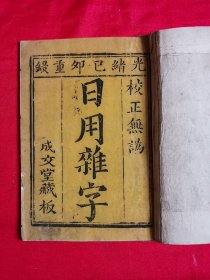 光緒己卯重鋟
校正無譌
日用雜字
成文堂藏板